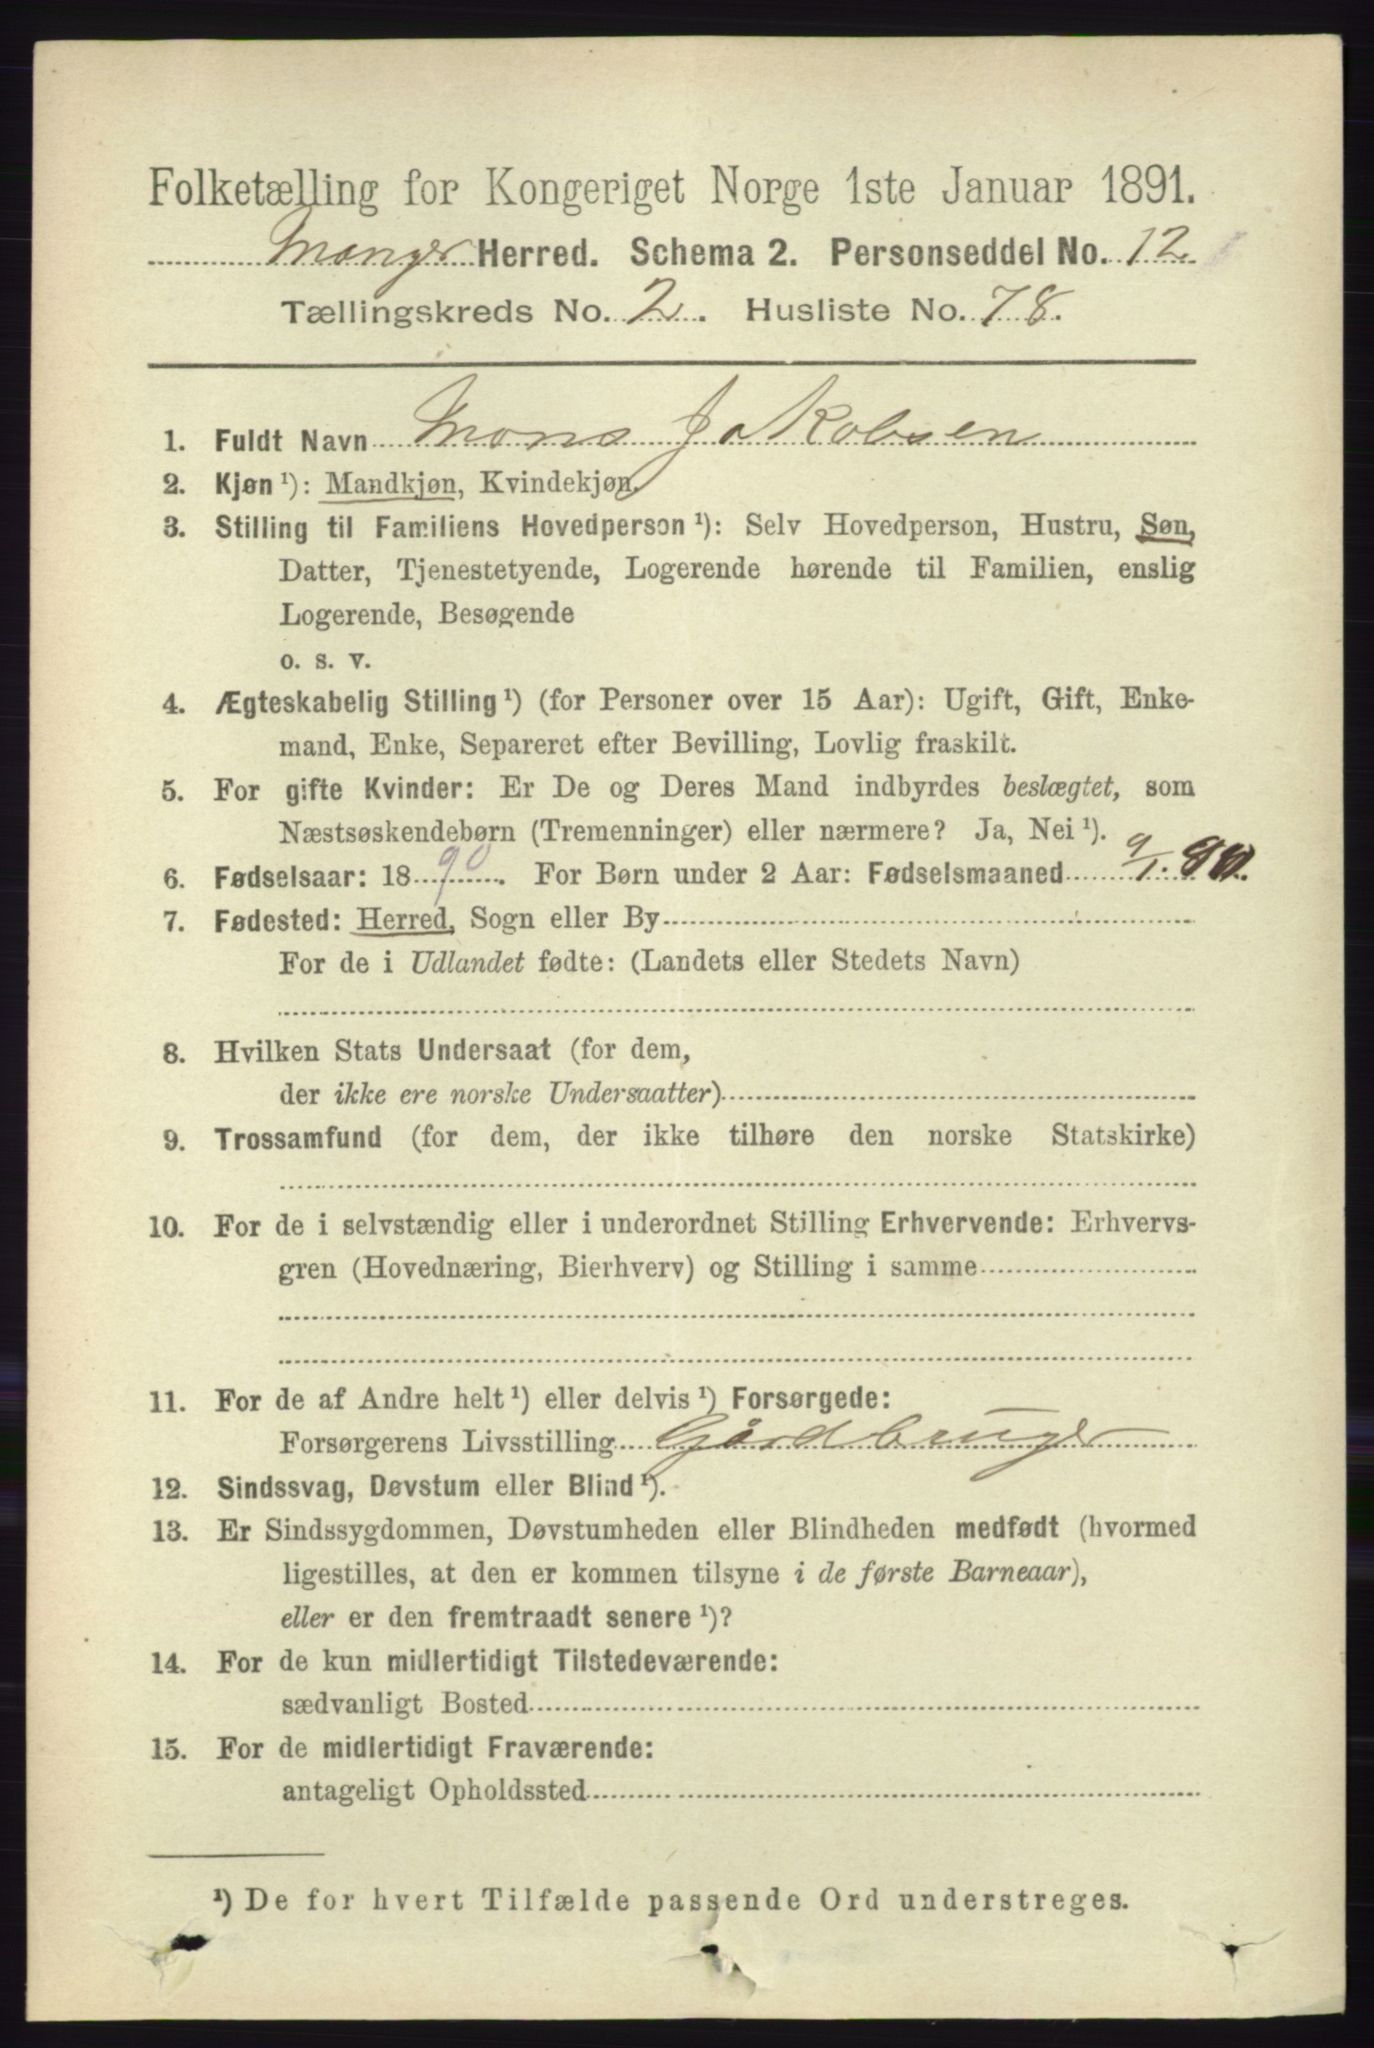 Folketælling for Kongeriget Norge 1ste Januar 1891.
Manger Herred. Schema 2. Personseddel No. 12.
Tællingskreds No. 2. Husliste No. 78.
1. Fuldt Navn Mons Jakobsen
2. Kjøn ¹): Mandkjøn, Kvindekjøn.
3. Stilling til Familiens Hovedperson ¹): Selv Hovedperson, Hustru, Søn,
Datter, Tjenestetyende, Logerende hørende til Familien, enslig
Logerende, Besøgende
o. s. v.
4. Ægteskabelig Stilling ¹) (for Personer over 15 Aar): Ugift, Gift, Enke-
mand, Enke, Separeret efter Bevilling, Lovlig fraskilt.
5. For gifte Kvinder: Er De og Deres Mand indbyrdes beslægtet, som
Næstsøskendebørn (Tremenninger) eller nærmere? Ja, Nei ¹).
6. Fødselsaar: 1890. For Børn under 2 Aar: Fødselsmaaned 9/1.90.
7. Fødested: Herred, Sogn eller By
For de i Udlandet fødte: (Landets eller Stedets Navn)
8. Hvilken Stats Undersaat (for dem,
der ikke ere norske Undersaatter)
9. Trossamfund (for dem, der ikke tilhøre den norske Statskirke)
10. For de i selvstændig eller i underordnet Stilling Erhvervende: Erhvervs-
gren (Hovednæring, Bierhverv) og Stilling i samme
11. For de af Andre helt ¹) eller delvis ¹) Forsørgede:
Forsørgerens Livsstilling Gårdbruger
12. Sindssvag, Døvstum eller Blind ¹).
13. Er Sindssygdommen, Døvstumheden eller Blindheden medfødt (hvormed
ligestilles, at den er kommen tilsyne i de første Barneaar),
eller er den fremtraadt senere ¹)?
14. For de kun midlertidigt Tilstedeværende:
sædvanligt Bosted
15. For de midlertidigt Fraværende:
antageligt Opholdssted
¹) De for hvert Tilfælde passende Ord understreges.